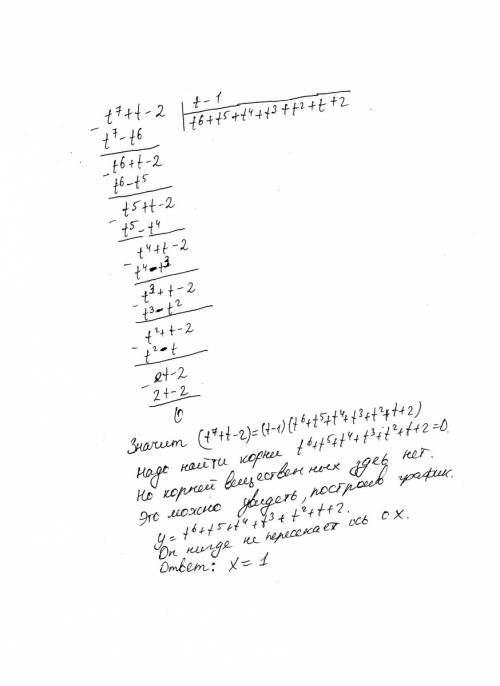 t⁷+t-2 | t-1
t⁷-t⁶ | t⁶+t⁵+t⁴+t³+t²+t+2
t⁶+t-2
t⁶-t⁵
t⁵+t-2
t⁵-t⁴
t⁴+t-2
t⁴-t³
t³+t-2
t³-t²
t²+t-2
t²-t
2t-2
2t-2
0
Значит (t⁷+t-2)=(t-1)(t⁶+t⁵+t⁴+t³+t²+t+2)
Надо найти корни t⁶+t⁵+t⁴+t³+t²+t+2=0
Но корней вещественных здесь нет.
Это можно увидеть, построив график.
y=t⁶+t⁵+t⁴+t³+t²+t+2.
Он нигде не пересекает ось ох.
Ответ: x=1